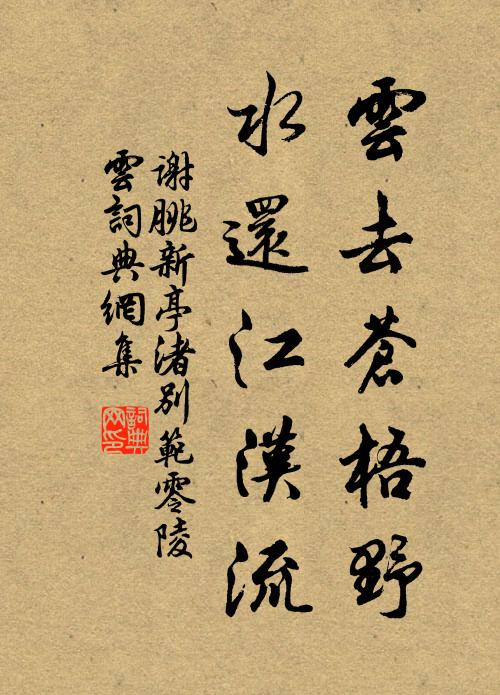 雲去蒼梧野
水還江漢流
謝朓新亭渚別範零陵
雲詞典網集
詞典网印